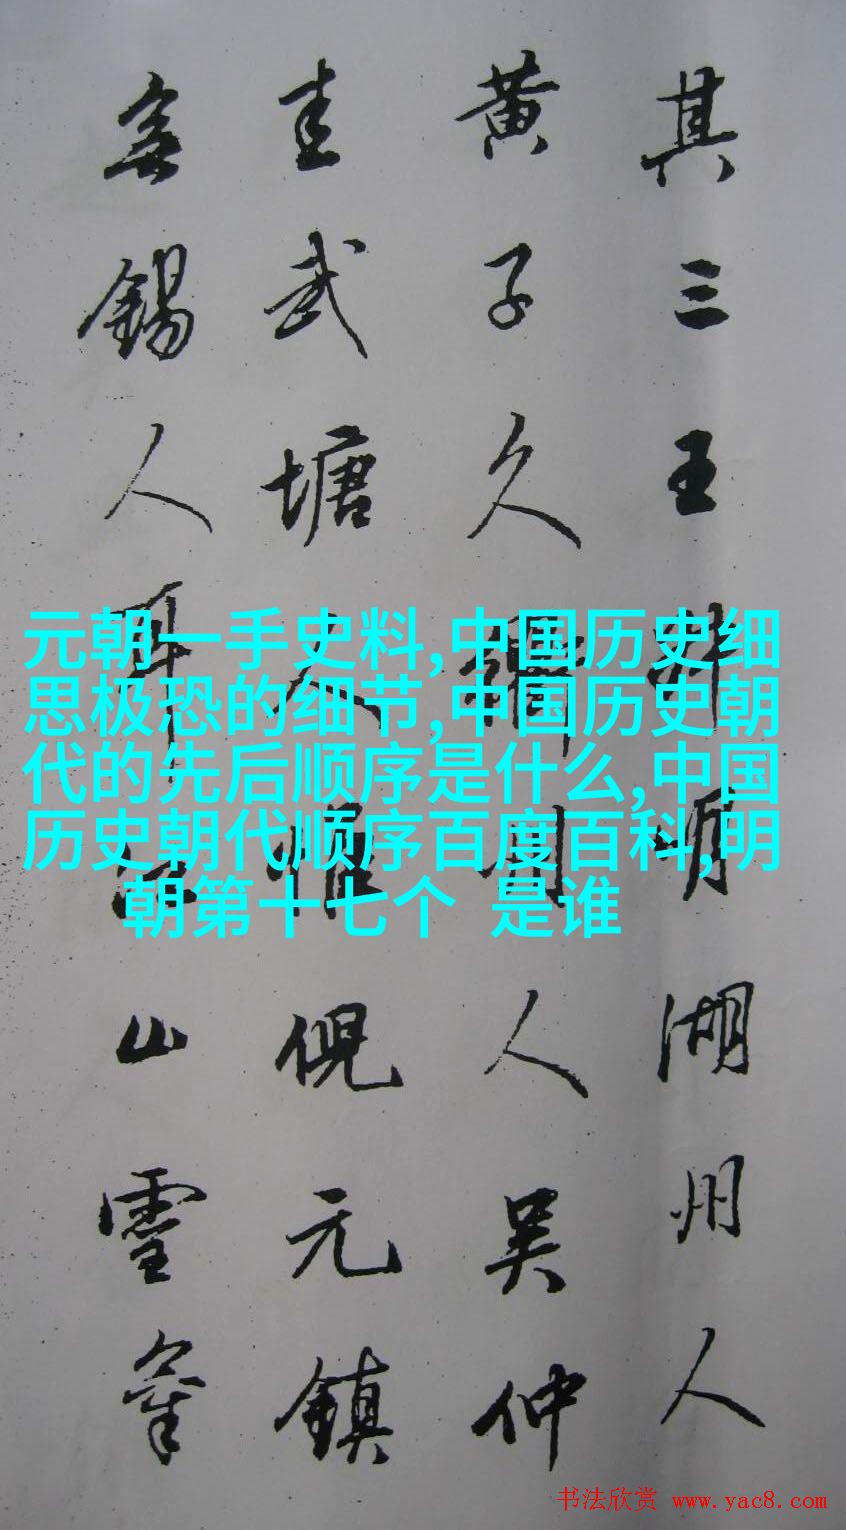 其三王叔明湖州人
黄子久人吴仲
圭武塘人惟倪元鎮
無錫人耳江山
元朝一手史料,中国历史细
思极恐的细节,中国历史朝
代的先后顺序是什么,中国
历史朝代顺序百度百科,明
朝第十七个 是谁
书法欣赏 www.yac8.com